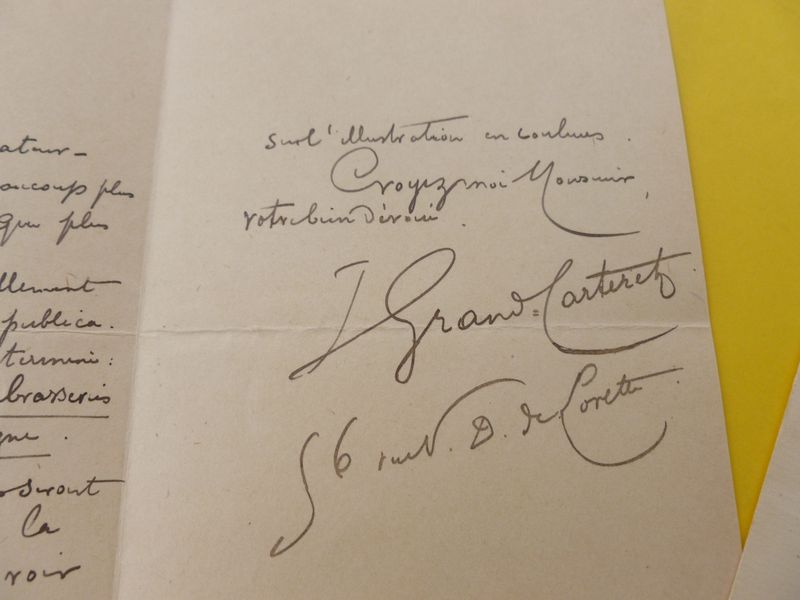 ateur-
beaucoup plus
que plus
llement
publica.
terminé:
brasseries
gne.
seront
la
voir
sur l'illustration en couleurs.
Croyez moi Monsieur,
votre bien dévoué.
J Grand=Carteret
56 rue N. D. de Lorette.